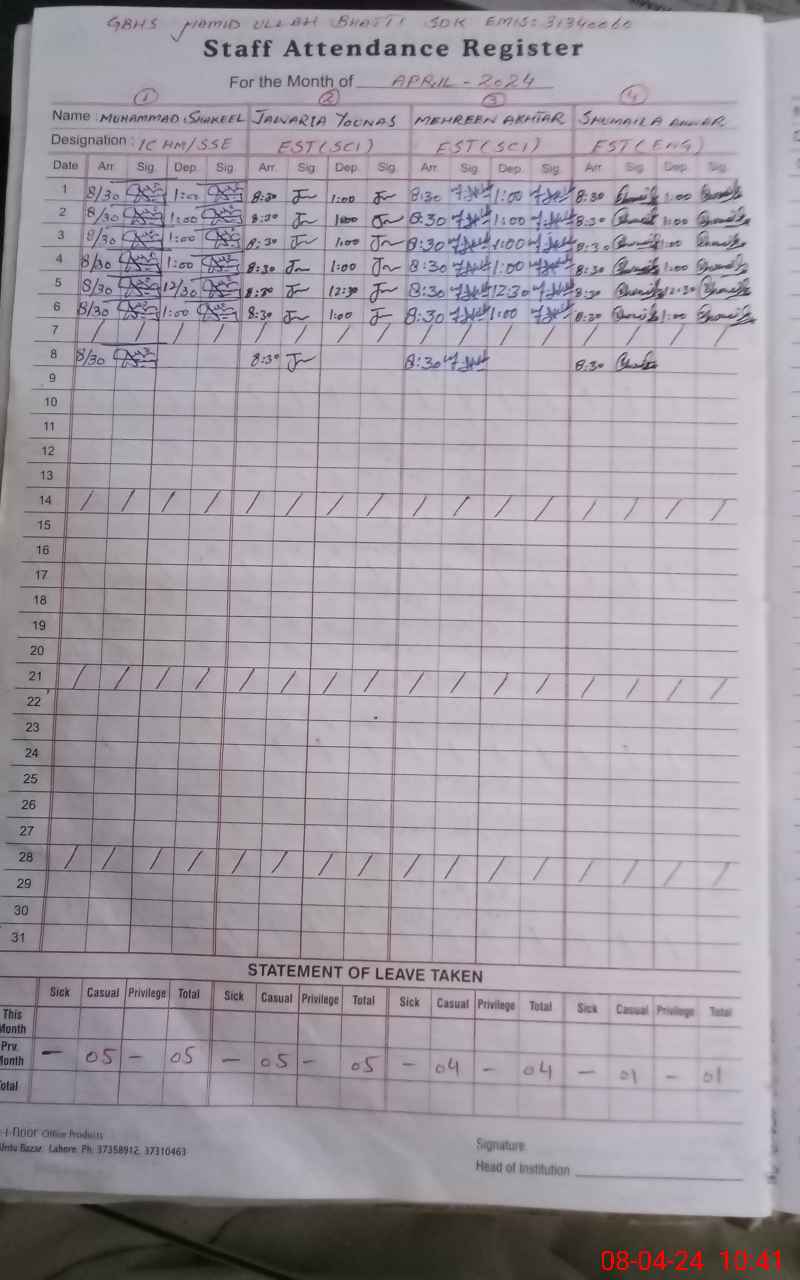 GBHS HAMID ULLAH BHATTI SDK EMIS: 31340060
Staff Attendance Register
For the Month of APRIL - 2024
1 2 3 4
Name : MUHAMMAD SHAKEEL JAWARIA YOUNAS MEHREEN AKHTAR SHUMAILA
Designation : IC HM/SSE EST(SCI) EST(SCI) EST(ENG)
Date Arr. Sig. Dep. Sig. Arr. Sig. Dep. Sig. Arr. Sig. Dep. Sig. Arr. Sig. Dep. Sig.
1 8/30 1:00 8:30 1:00 8:30 1:00 8:30 1:00
2 8/30 1:00 8:30 1:00 8:30 1:00 8:30 1:00
3 8/30 1:00 8:30 1:00 8:30 1:00 8:30 1:00
4 8/30 1:00 8:30 1:00 8:30 1:00 8:30 1:00
5 8/30 12/30 8:30 12:30 8:30 12:30 8:30 12:30
6 8/30 1:00 8:30 1:00 8:30 1:00 8:30 1:00
7 / / / / / / / / / / / / / / / /
8 8/30 8:30 8:30 8:30
9
10
11
12
13
14 / / / / / / / / / / / / / / / /
15
16
17
18
19
20
21 / / / / / / / / / / / / / / / /
22
23
24
25
26
27
28 / / / / / / / / / / / / / / / /
29
30
31
STATEMENT OF LEAVE TAKEN
Sick Casual Privilege Total Sick Casual Privilege Total Sick Casual Privilege Total Sick Casual Privilege Total
This Month
Prv. Month - 05 - 05 - 05 - 05 - 04 - 04 - 01 - 01
otal
Office Products
Urdu Bazar, Lahore. Ph: 37358912, 37310463
Signature
Head of Institution
08-04-24 10:41